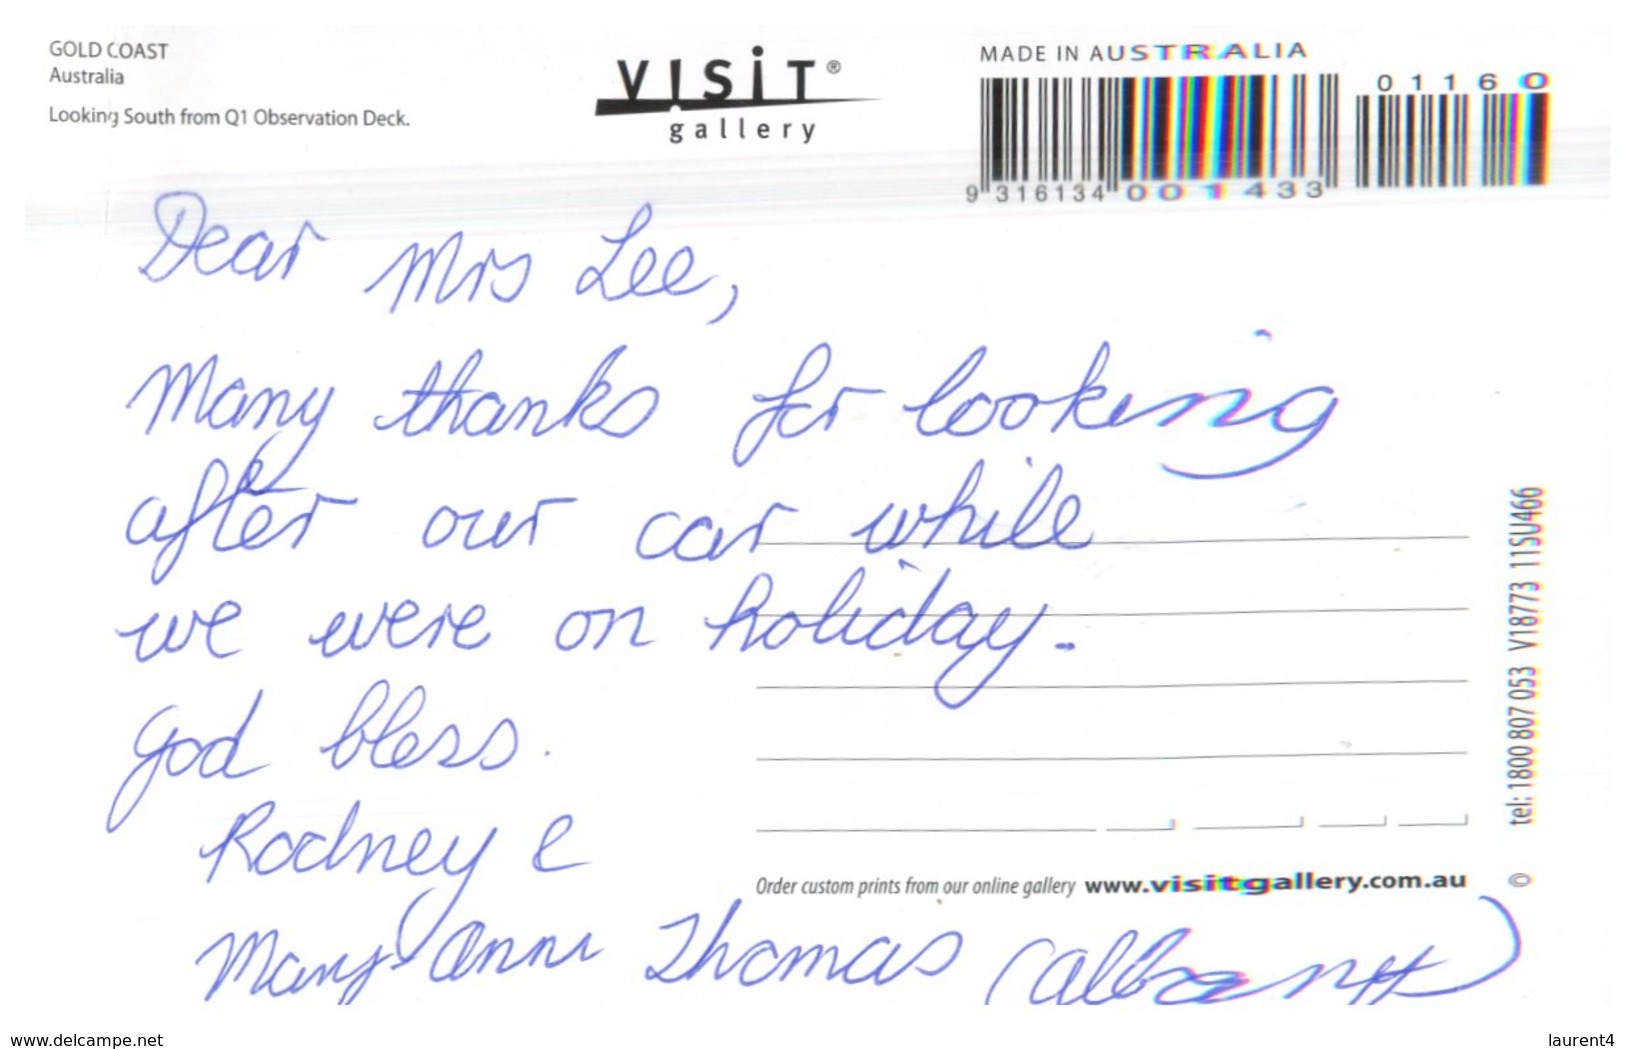 GOLD COAST
Australia
Looking South from Q1 Observation Deck.
VISIT®
gallery
MADE IN AUSTRALIA
01160
9 316134 001433
Dear Mrs Lee,
Many thanks for looking
after our car while
we were on holiday.
God bless.
Rodney e
Mary Anne Thomas (Albany)
tel: 1800 807 053 V18773 11SU466
Order custom prints from our online gallery www.visitgallery.com.au ©
www.delcampe.net
laurent4